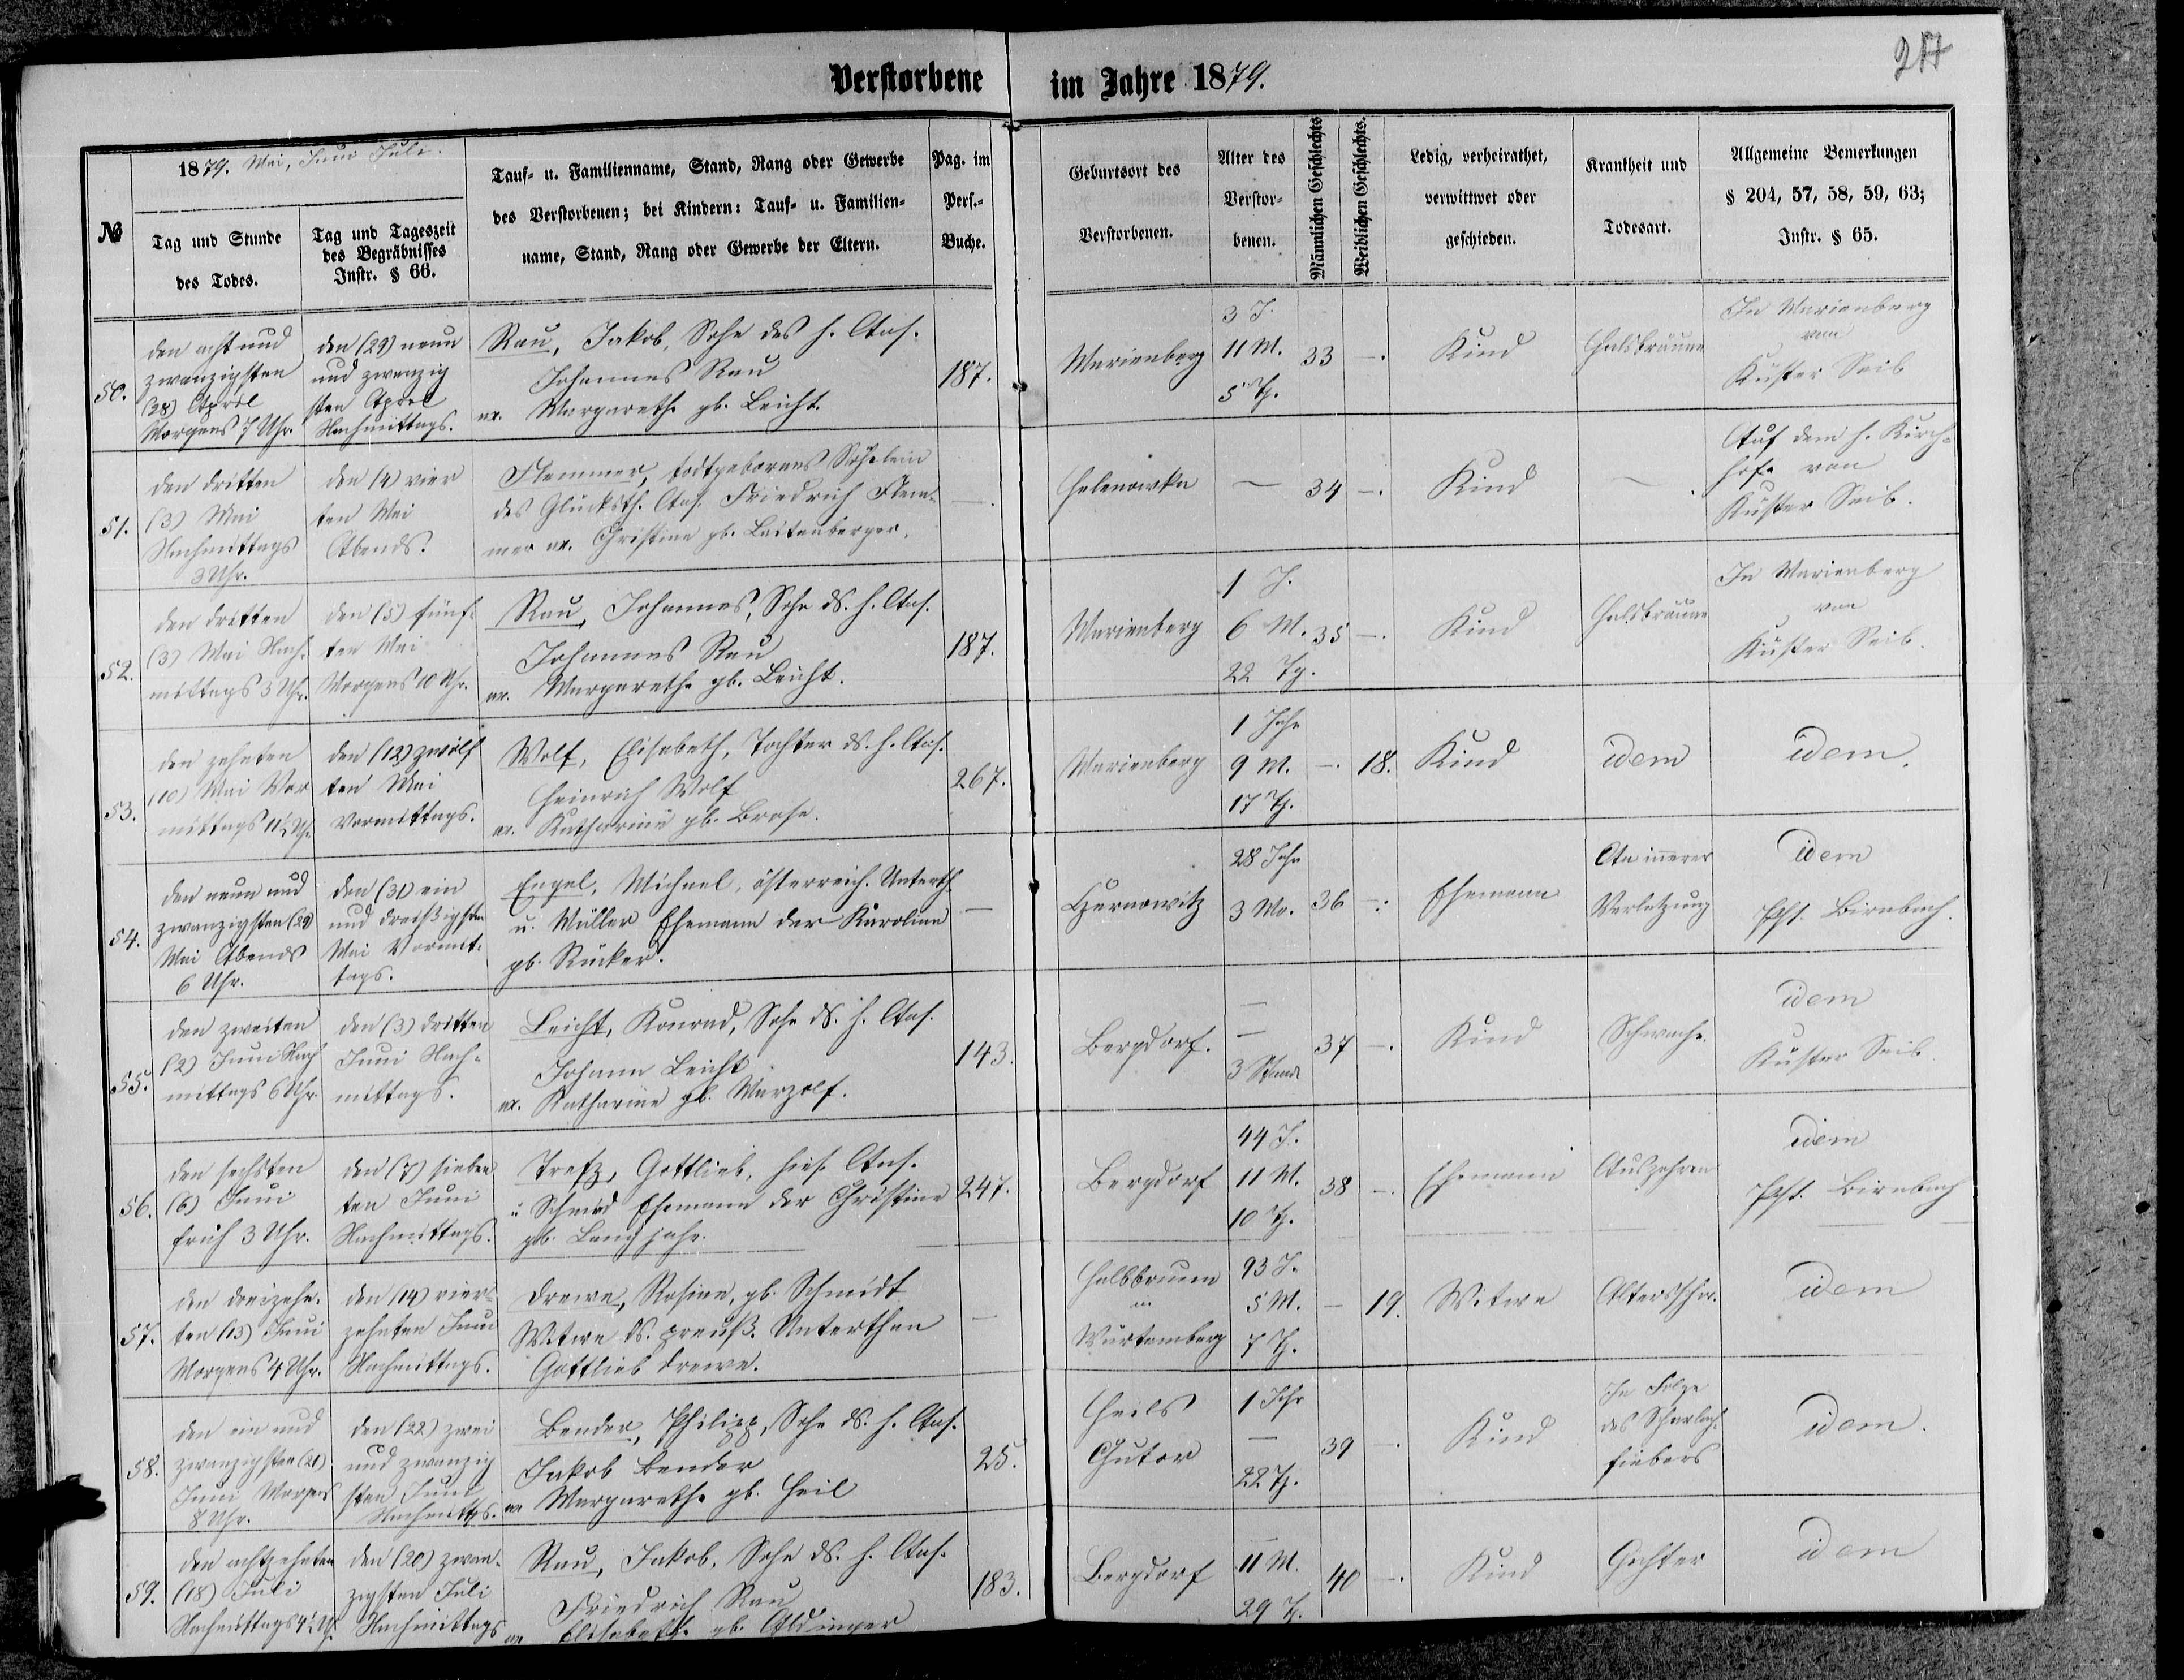 Verstorbene im Jahre 1879.
1879. Mai, Juni Juli.
№
Tag und Stunde
des Todes.
Tag und Tageszeit
des Begräbnisses
Instr. § 66.
Tauf- u. Familienname, Stand, Rang oder Gewerbe
des Verstorbenen; bei Kindern: Tauf- u. Familien-
name, Stand, Rang oder Gewerbe der Eltern.
Pag. im
Pers.-
Buche.
Geburtsort des
Verstorbenen.
Alter des
Verstor-
benen.
Männlichen Geschlechts
Weiblichen Geschlechts.
Ledig, verheirathet,
verwittwet oder
geschieden.
Krankheit und
Todesart.
Allgemeine Bemerkungen
§ 204, 57, 58, 59, 63;
Instr. § 65.
50.
den acht und
zwanzigsten
(28) April
Morgens 7 Uhr.
den (29) neun
und zwanzig
sten April
Nachmittags.
Rau, Jakob, Sohn des h. Ans.
Johannes Rau
ux. Margarethe gb. Leicht.
187.
Marienberg
3 J.
11 M.
5 Tg.
33
—.
Kind
Halsbräune
In Marienberg
von
Küster Seib
51.
den dritten
(3) Mai
Nachmittags
3 Uhr.
den (4) vier
ten Mai
Abends.
Flemmer, todtgebornes Söhnlein
des Glücksth. Ans. Friedrich Flem-
mer ux. Christine gb. Laitenberger.
—.
Helenowka
—
34
—.
Kind
—.
Auf dem h. Kirch-
hofe von
Küster Seib.
52.
den dritten
(3) Mai Nach-
mittags 3 Uhr.
den (5) fünf-
ten Mai
Morgens 10 Uhr.
Rau, Johannes, Sohn ds. h. Ans.
Johannes Rau
ux. Margarethe gb. Leicht.
187.
Marienberg
1 J.
6 M.
22 Tg.
35
—.
Kind
Halsbräune
In Marienberg
von
Küster Seib.
53.
den zehnten
(10) Mai Vor
mittags 11½ Uhr.
den (12) zwölf
ten Mai
Vormittags.
Wolf, Elisabeth, Tochter ds. h. Ans.
Heinrich Wolf
ux. Katharine gb. Brose.
267.
Marienberg
1 Jahr
9 M.
17 Tg.
—.
18.
Kind
idem
idem.
54.
den neun und
zwanzigsten (29)
Mai Abends
6 Uhr.
den (31) ein
und dreißigsten
Mai Vormit-
tags.
Engel, Michael, österreich. Unterth.
u. Müller Ehemann der Karoline
gb. Rücker.
—
28 Jahr
3 Mo.
36
—.
Ehemann
An innerer
Verletzung
idem
Pst. Birnbach.
55.
den zweiten
(2) Juni Nach
mittags 6 Uhr.
den (3) dritten
Juni Nach-
mittags.
Leicht, Konrad, Sohn ds. h. Ans.
Johann Leicht
ux. Katharine gb. Warzolf.
143.
Bergdorf.
—
—
3 Stund
37
—.
Kind
Schwäche.
idem
Küster Seib.
56.
den sechsten
(6) Juni
früh 3 Uhr.
den (7) sieben
ten Juni
Nachmittags.
Trefz, Gottlieb, hies. Ans.
u. Schmid Ehemann der Christine
gb. Langjahr.
247.
Bergdorf
44 J.
11 M.
10 Tg.
38
—.
Ehemann
Auszehren
idem
Pst. Birnbach
57.
den dreizehn-
ten (13) Juni
Morgens 4 Uhr.
den (14) vier-
zehnten Juni
Nachmittags.
Drewe, Rosine, gb. Schmidt
Witwe ds. preuß. Unterthan
Gottlieb Drewe.
—
in
Würtemberg
93 J.
5 M.
7 Tg.
—
19.
Witwe
Altersschw.
idem
58.
den ein und
zwanzigsten (21)
Juni Morgens
8 Uhr.
den (22) zwei
und zwanzig
sten Juni
Nachmittgs.
Bender, Philipp, Sohn ds. h. Ans.
Jakob Bender
ux Margarethe gb. Heil
25.
Heils
Chutor
1 Jahr
—
22 Tg.
39
—.
Kind
In Folge
des Scharlach-
fiebers
idem.
59.
den achtzehnten
(18) Juli
Nachmittags 4½ Uhr
den (20) zwan-
zigsten Juli
Nachmittags
Rau, Jakob, Sohn ds. h. Ans.
Friedrich Rau
ux Elisabeth gb. Aldinger
183.
Bergdorf
—
11 M.
29 Tg.
40
—.
Kind
Gichter
idem